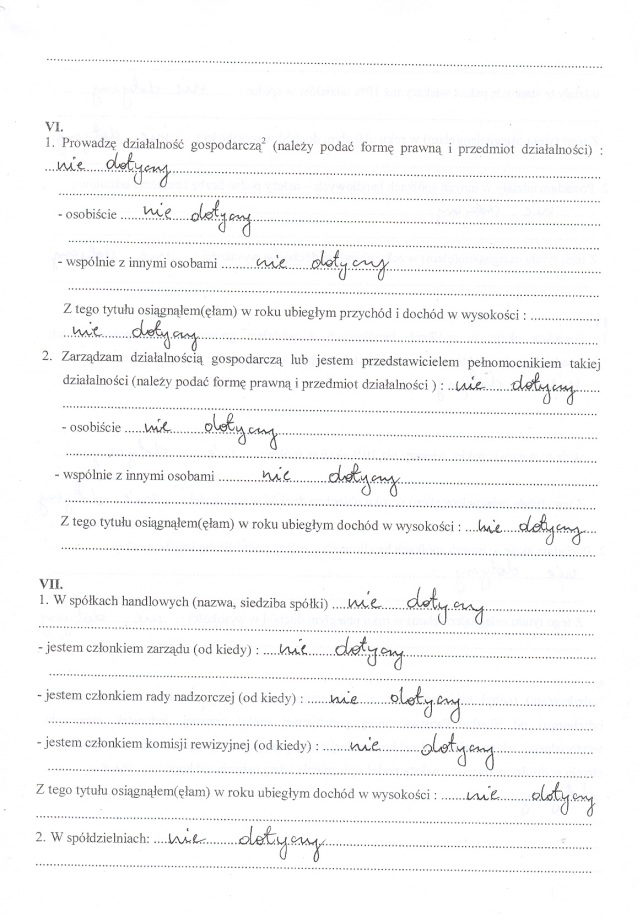 VI.
1. Prowadzę działalność gospodarczą² (należy podać formę prawną i przedmiot działalności) :
nie dotyczy
- osobiście nie dotyczy
- wspólnie z innymi osobami nie dotyczy
Z tego tytułu osiągnąłem(ęłam) w roku ubiegłym przychód i dochód w wysokości :
nie dotyczy
2. Zarządzam działalnością gospodarczą lub jestem przedstawicielem pełnomocnikiem takiej
działalności (należy podać formę prawną i przedmiot działalności ) : nie dotyczy
- osobiście nie dotyczy
- wspólnie z innymi osobami nie dotyczy
Z tego tytułu osiągnąłem(ęłam) w roku ubiegłym dochód w wysokości : nie dotyczy
VII.
1. W spółkach handlowych (nazwa, siedziba spółki) nie dotyczy
- jestem członkiem zarządu (od kiedy) : nie dotyczy
- jestem członkiem rady nadzorczej (od kiedy) : nie dotyczy
- jestem członkiem komisji rewizyjnej (od kiedy) : nie dotyczy
Z tego tytułu osiągnąłem(ęłam) w roku ubiegłym dochód w wysokości : nie dotyczy
2. W spółdzielniach: nie dotyczy